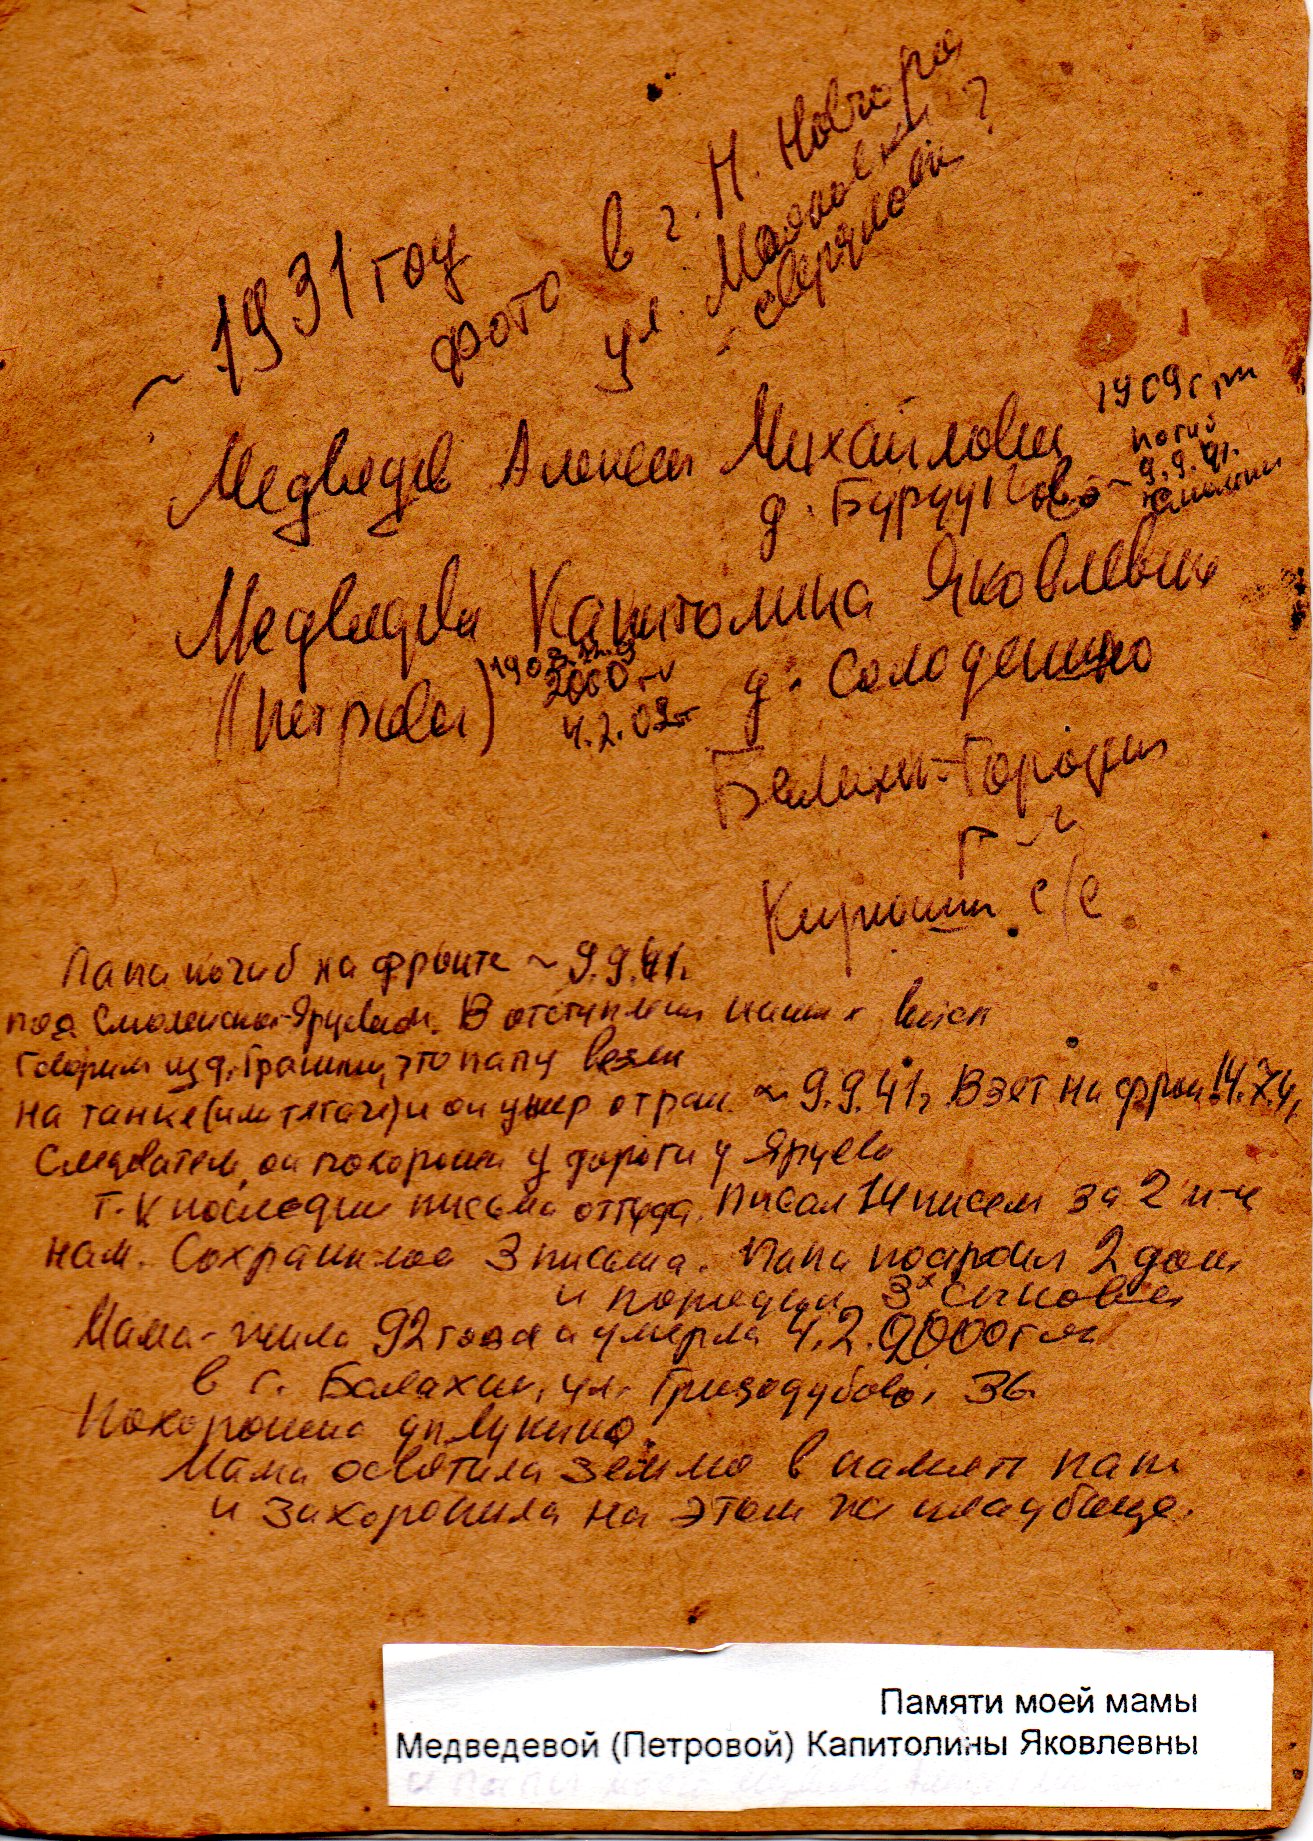 ~ 1931 году
фото в г. Н. Новгоро
ул. Маяковки
~ свердлова ?
Медведев Алексей Михайлович 1909 г.
погиб
д. Бурцуково ~ 9.9.41.
Медведева Капитолина Яковлевн
(Петрова) 1908
2000
4.2.
д. Солоденино
Балахн. Город
с/с
Папа погиб на фронте ~ 9.9.41.
под Смоленском-Ярцевом. В отступлении наших войск
говорили из д. что папу везли
на танке (или тягаче) и он умер от ран ~ 9.9.41г. Взят на фрон
Следователь, он похоронен у дороги у Ярцева
т.к последние письма оттуда. Писал 14 писем за 2 м-ца
нам. Сохранилос 3 письма. Папа построил 2 дома
и породил 3х сыновей
Мама - жила 92 года и умерла 4.2.2000г
в г. Балахне, ул. Гризодубовой, 36.
Похоронена
Мама освятила землю в память папы
и захоронила на этом же кладбище.
Памяти моей мамы
Медведевой (Петровой) Капитолины Яковлевны